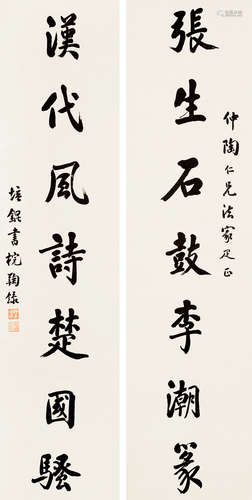 仲陶仁兄法家疋正
張生石鼓李潮篆
漢代風詩楚國騷
培錕書於鞠隊